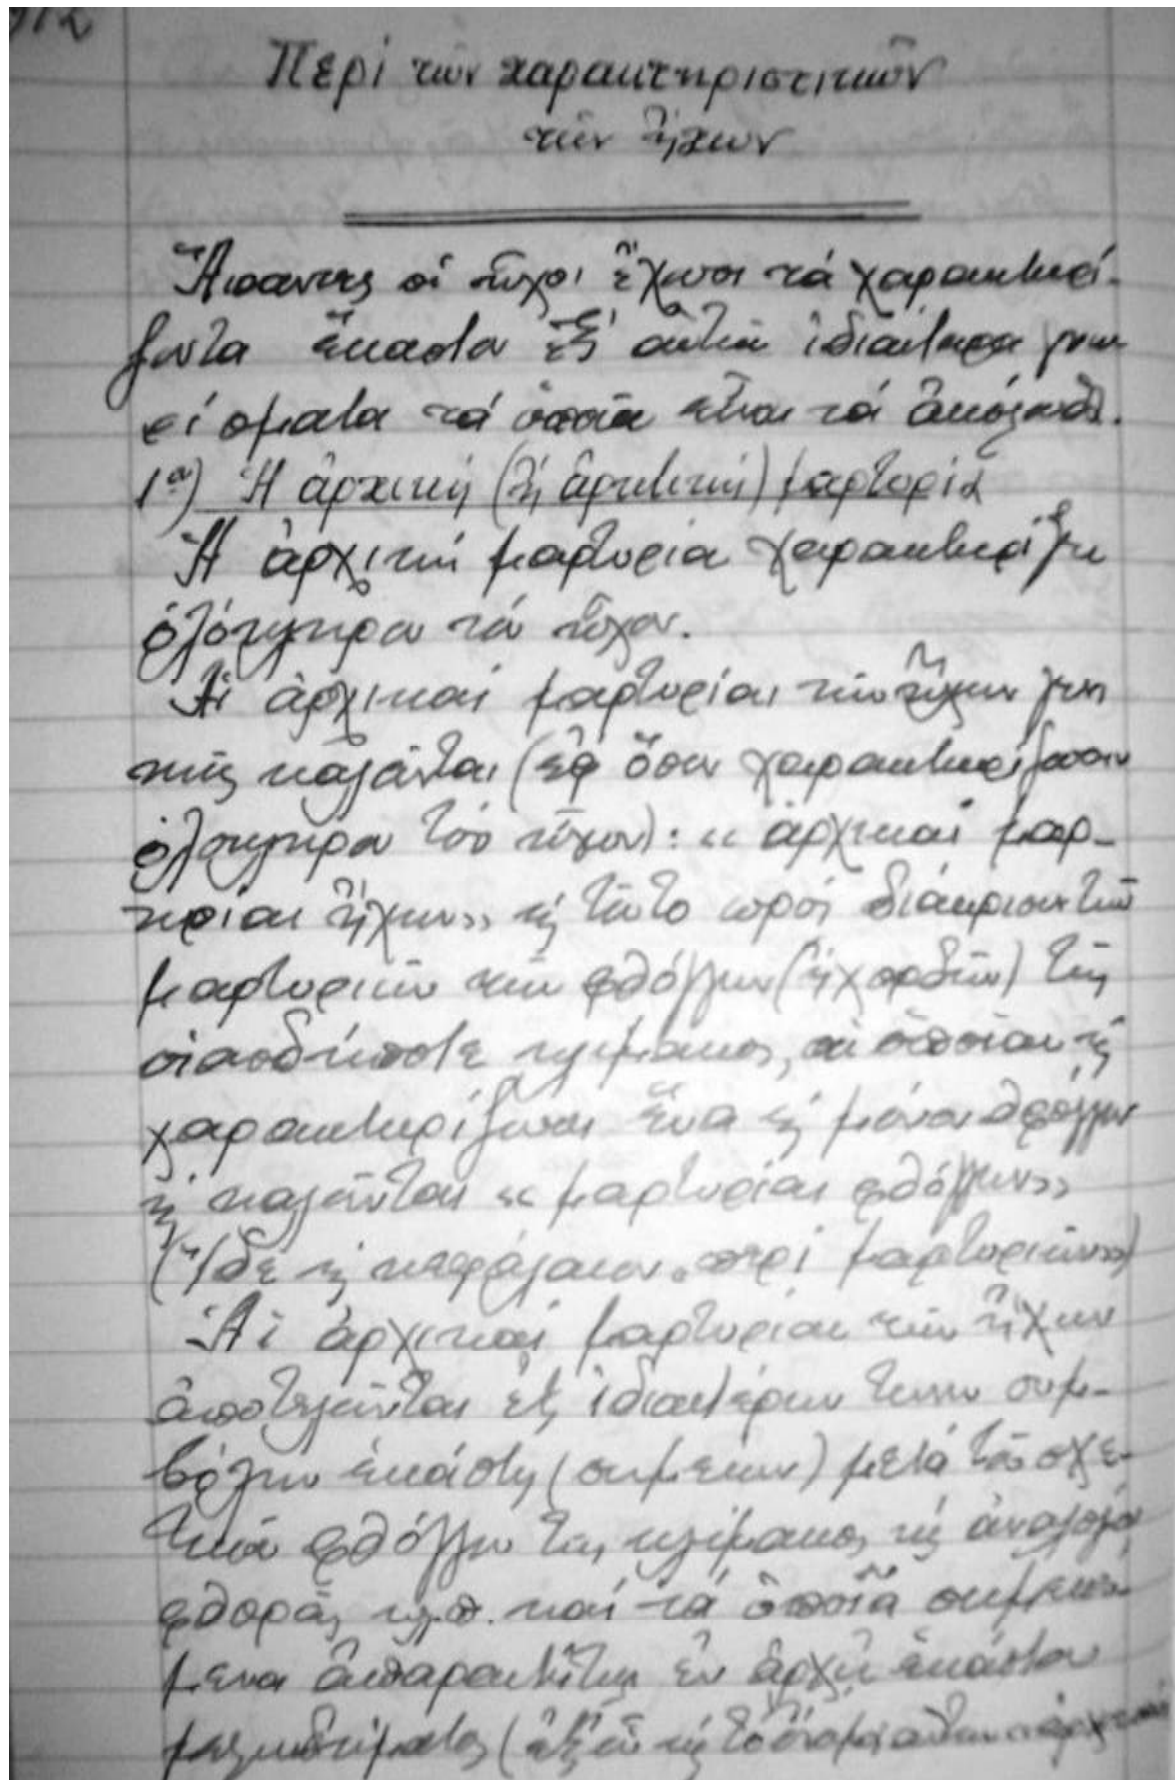 Περί τῶν χαρακτηριστικῶν
τῶν ἤχων
Ἅπαντες οἱ ἦχοι ἔχουσι τά χαρακτηρί-
ζοντα ἕκαστον ἐξ αὐτῶν ἰδιαίτερα γνω
ρίσματα τά ὁποῖα εἶναι τά ἀκόλουθα.
1ον) Ἡ ἀρχική (ἤ ἀρκτική) μαρτυρία
Ἡ ἀρχική μαρτυρία χαρακτηρίζει
ὁλόκληρον τόν ἦχον.
Αἱ ἀρχικαί μαρτυρίαι τῶν ἤχων γενι
κῶς καλοῦνται (ἐφ ὅσον χαρακτηρίζουσιν
ὁλόκληρον τόν ἦχον): «ἀρχικαί μαρ-
τυρίαι ἤχων» καί τοῦτο πρός διάκρισιν τῶν
μαρτυριῶν τῶν φθόγγων (ἤ χορδῶν) τῆς
οἱασδήποτε κλίμακος, αἱ ὁποῖαι καί
χαρακτηρίζουσι ἕνα καί μόνον φθόγγον
καί καλοῦνται «μαρτυρίαι φθόγγων»
δέ καί κεφάλαιον «περί μαρτυριῶν»)
Αἱ ἀρχικαί μαρτυρίαι τῶν ἤχων
ἀποτελοῦνται ἐξ ἰδιαιτέρων τινων συμ-
βόλων ἑκάστη (σημείων) μετά τοῦ σχε-
τικοῦ φθόγγου τῆς κλίμακος, τῆς ἀναλόγου
φθορᾶς κλπ. καί τά ὁποῖα σημειού
μενα ἀπαραιτήτως ἐν ἀρχῇ ἑκάστου
μελωδήματος (ἐξ οὗ καί τό ὄνομα αὐτῶν ἀρχικαί